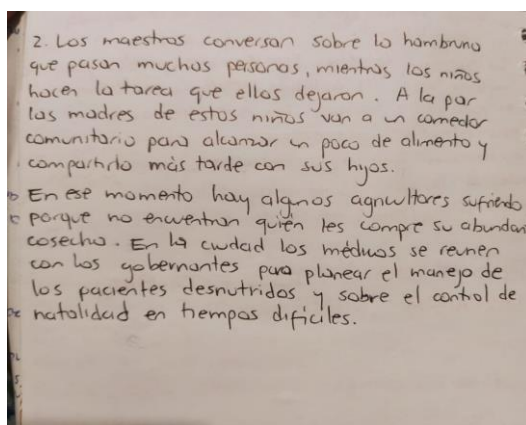 2. Los maestros conversan sobre la hambruna
que pasan muchas personas, mientras los niños
hacen la tarea que ellos dejaron. A la par
las madres de estos niños van a un comedor
comunitario para alcanzar un poco de alimento y
compartirlo más tarde con sus hijos.
En ese momento hay algunos agricultores sufriendo
porque no encuentran quién les compre su abundan
cosecha. En la ciudad los médicos se reunen
con los gobernantes para planear el manejo de
los pacientes desnutridos y sobre el control de
natalidad en tiempos dificiles.